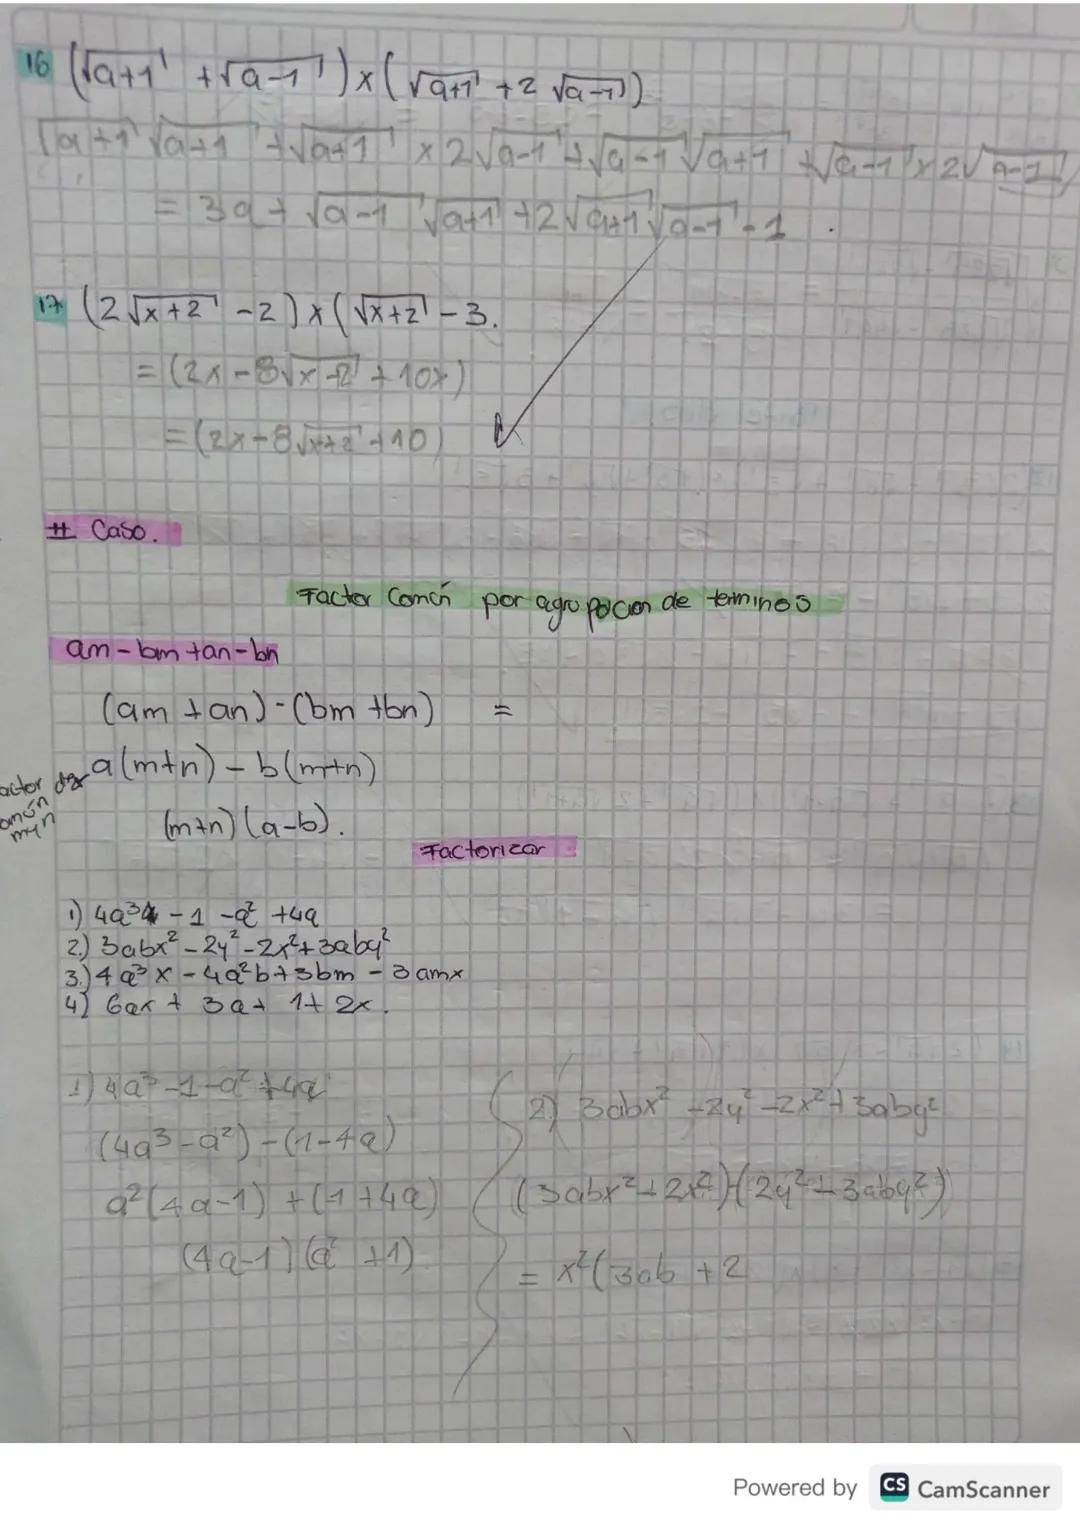 16 (√a+1 + √a-1) x (√a+1 + 2 √a-1)
√a+1 √a+1 + √a+1 x 2√a-1 + √a-1 √a+1 + √a-1 x 2√a-1
= 3a + √a-1 √a+1 + 2√a+1 √a-1 - 1
17 (2√x+2 - 2) x (√x+2 - 3.
= (2x - 8√x-2 + 10x)
= (2x - 8√x+2 + 10)
# Caso.
Factor Común por agrupacion de terminos
am - bm + an - bn
(am + an) - (bm + bn) =
a(m+n) - b(m+n)
(m+n) (a-b).
Factorizar
1) 4a³ - 1 - a² + 4a
2) 3abx² - 2y² - 2x² + 3aby²
3) 4a³x - 4a²b + 3bm - 3amx
4) 6ax + 3a + 1 + 2x.
1) 4a³ - 1 - a² + 4a
(4a³ - a²) - (1 - 4a)
a²(4a-1) + (1+4a)
(4a-1) (a² + 1)
2) 3abx² - 2y² - 2x² + 3aby²
(3abx² + 2x²) - (2y² + 3aby²)
= x²(3ab + 2
Powered by CS CamScanner